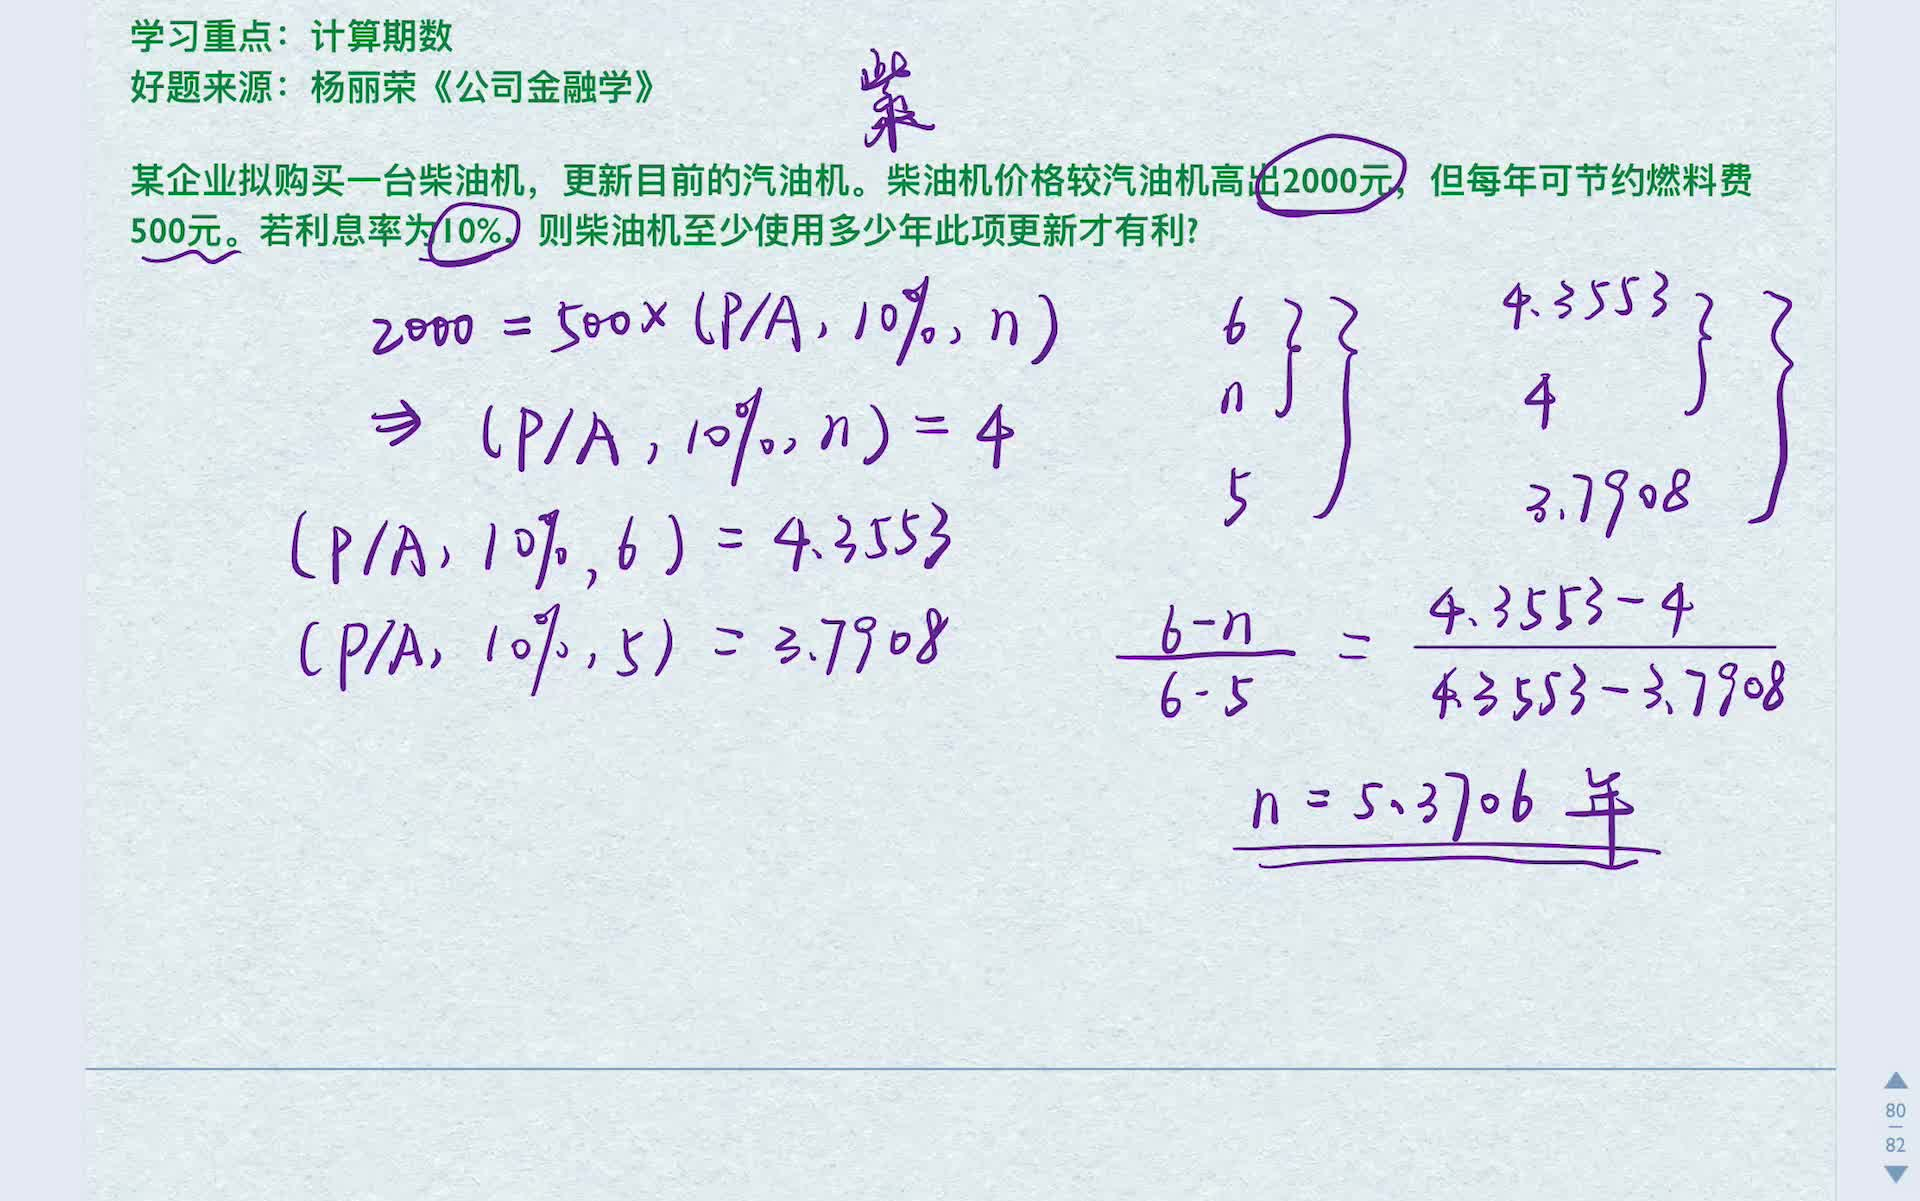 学习重点：计算期数
好题来源：杨丽荣《公司金融学》
柴
某企业拟购买一台柴油机，更新目前的汽油机。柴油机价格较汽油机高出2000元，但每年可节约燃料费
500元。若利息率为10%，则柴油机至少使用多少年此项更新才有利?
2000 = 500×(P/A, 10%, n)
⇒ (P/A, 10%, n) = 4
(P/A, 10%, 6) = 4.3553
(P/A, 10%, 5) = 3.7908
6 4.3553
n 4
5 3.7908
6-n = 4.3553-4
6-5 4.3553-3.7908
n = 5.3706 年
80
82